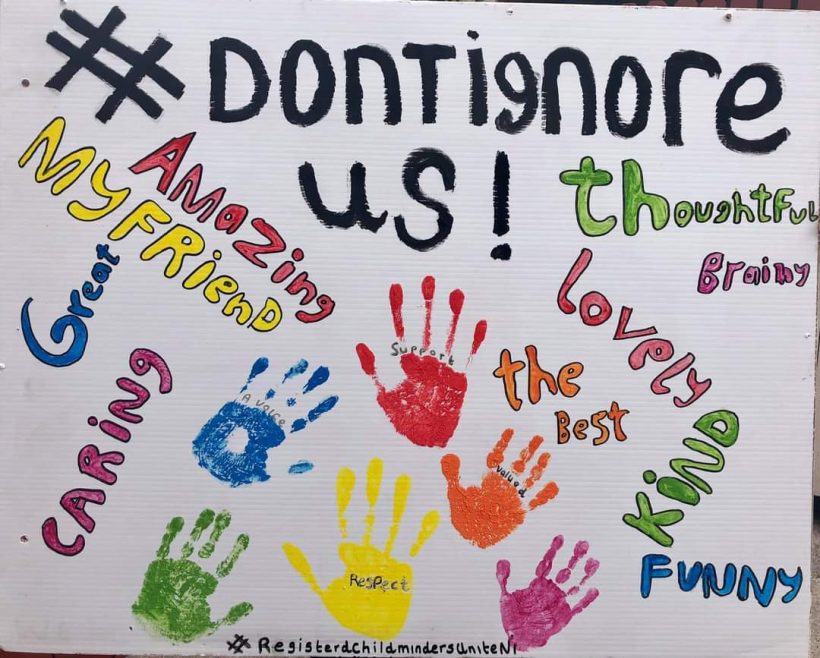 #DONTignore
us!
MY FRienD
AMazing
thoughtFul
Brainy
Great
Lovely
CARing
Support
the
Best
A voice
KiND
valued
Respect
FUNNY
#RegisterdchildmindersUniteNI